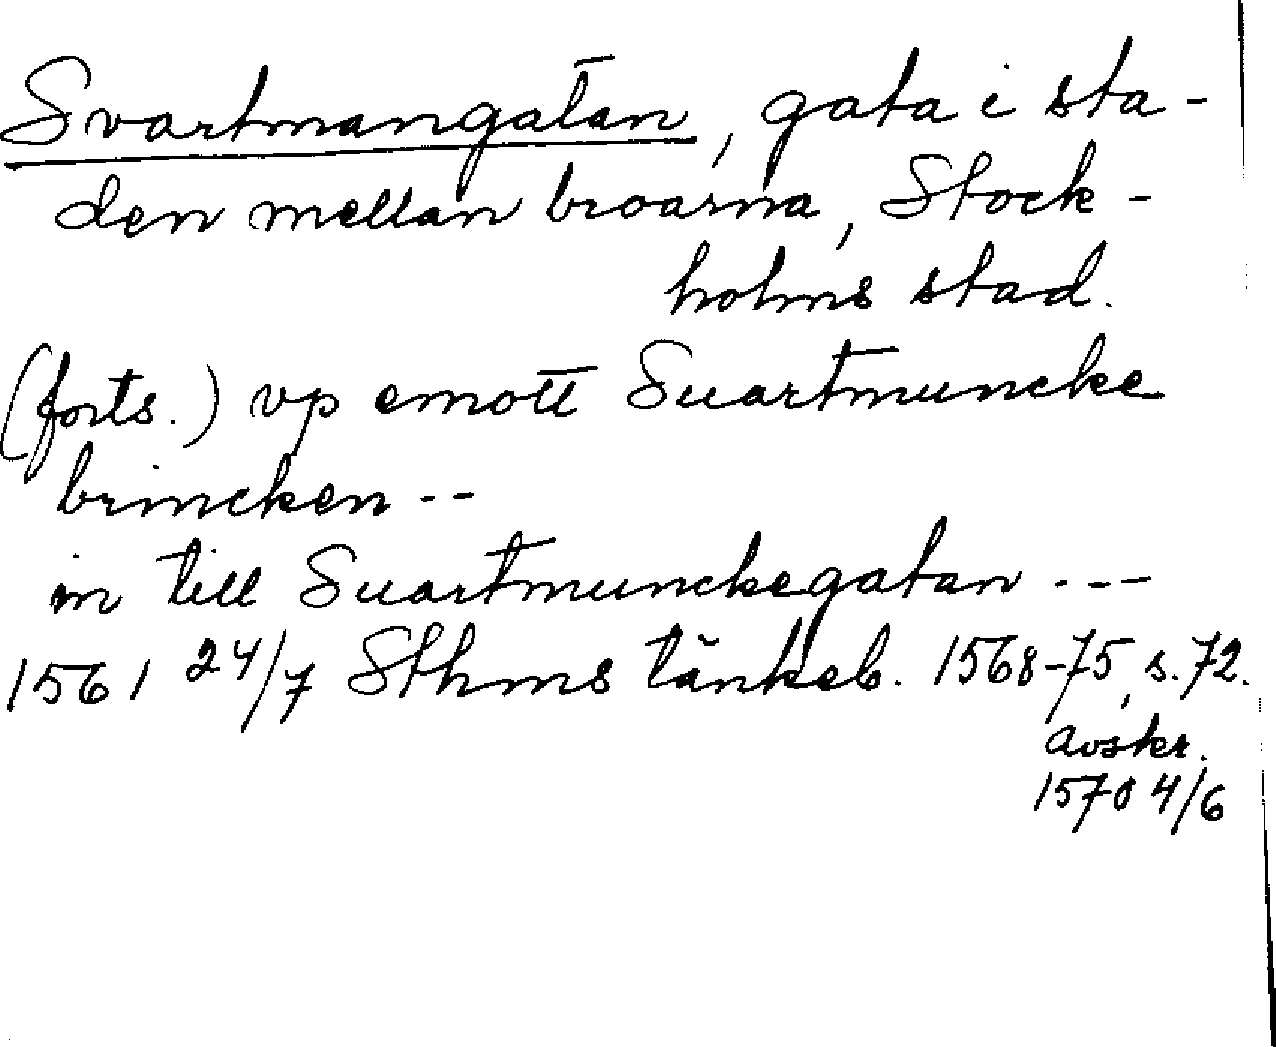 Svartmangatan, gata i sta-
den mellan broarna, Stock-
holms stad.
(forts.) vp emott Suartmuncke
brincken --
in till Suartmunckegatan ---
1561 24/7 Sthms tänkeb. 1568-75, s. 72.
avskr.
1570 4/6